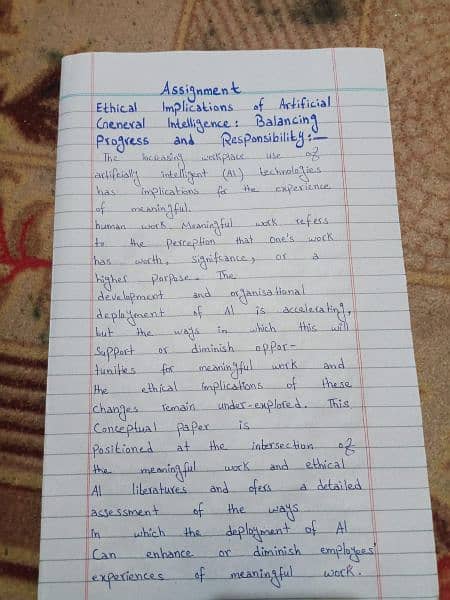 Assignment
Ethical Implications of Artificial
General Intelligence: Balancing
Progress and Responsibility:—
The Increasing workplace use of
artificially intelligent (AI) technologies
has implications for the experience
of meaningful.
human work. Meaningful work refers
to the perception that one's work
has worth, significance, or a
higher purpose. The
development and organisational
deployment of AI is accelerating,
but the ways in which this will
Support or diminish oppor-
tunities for meaningful work and
the ethical implications of these
changes remain under-explored. This
Conceptual paper is
positioned at the intersection of
the meaningful work and ethical
AI literatures and ofers a detailed
assessment of the ways
in which the deployment of AI
Can enhance or diminish employees'
experiences of meaningful work.